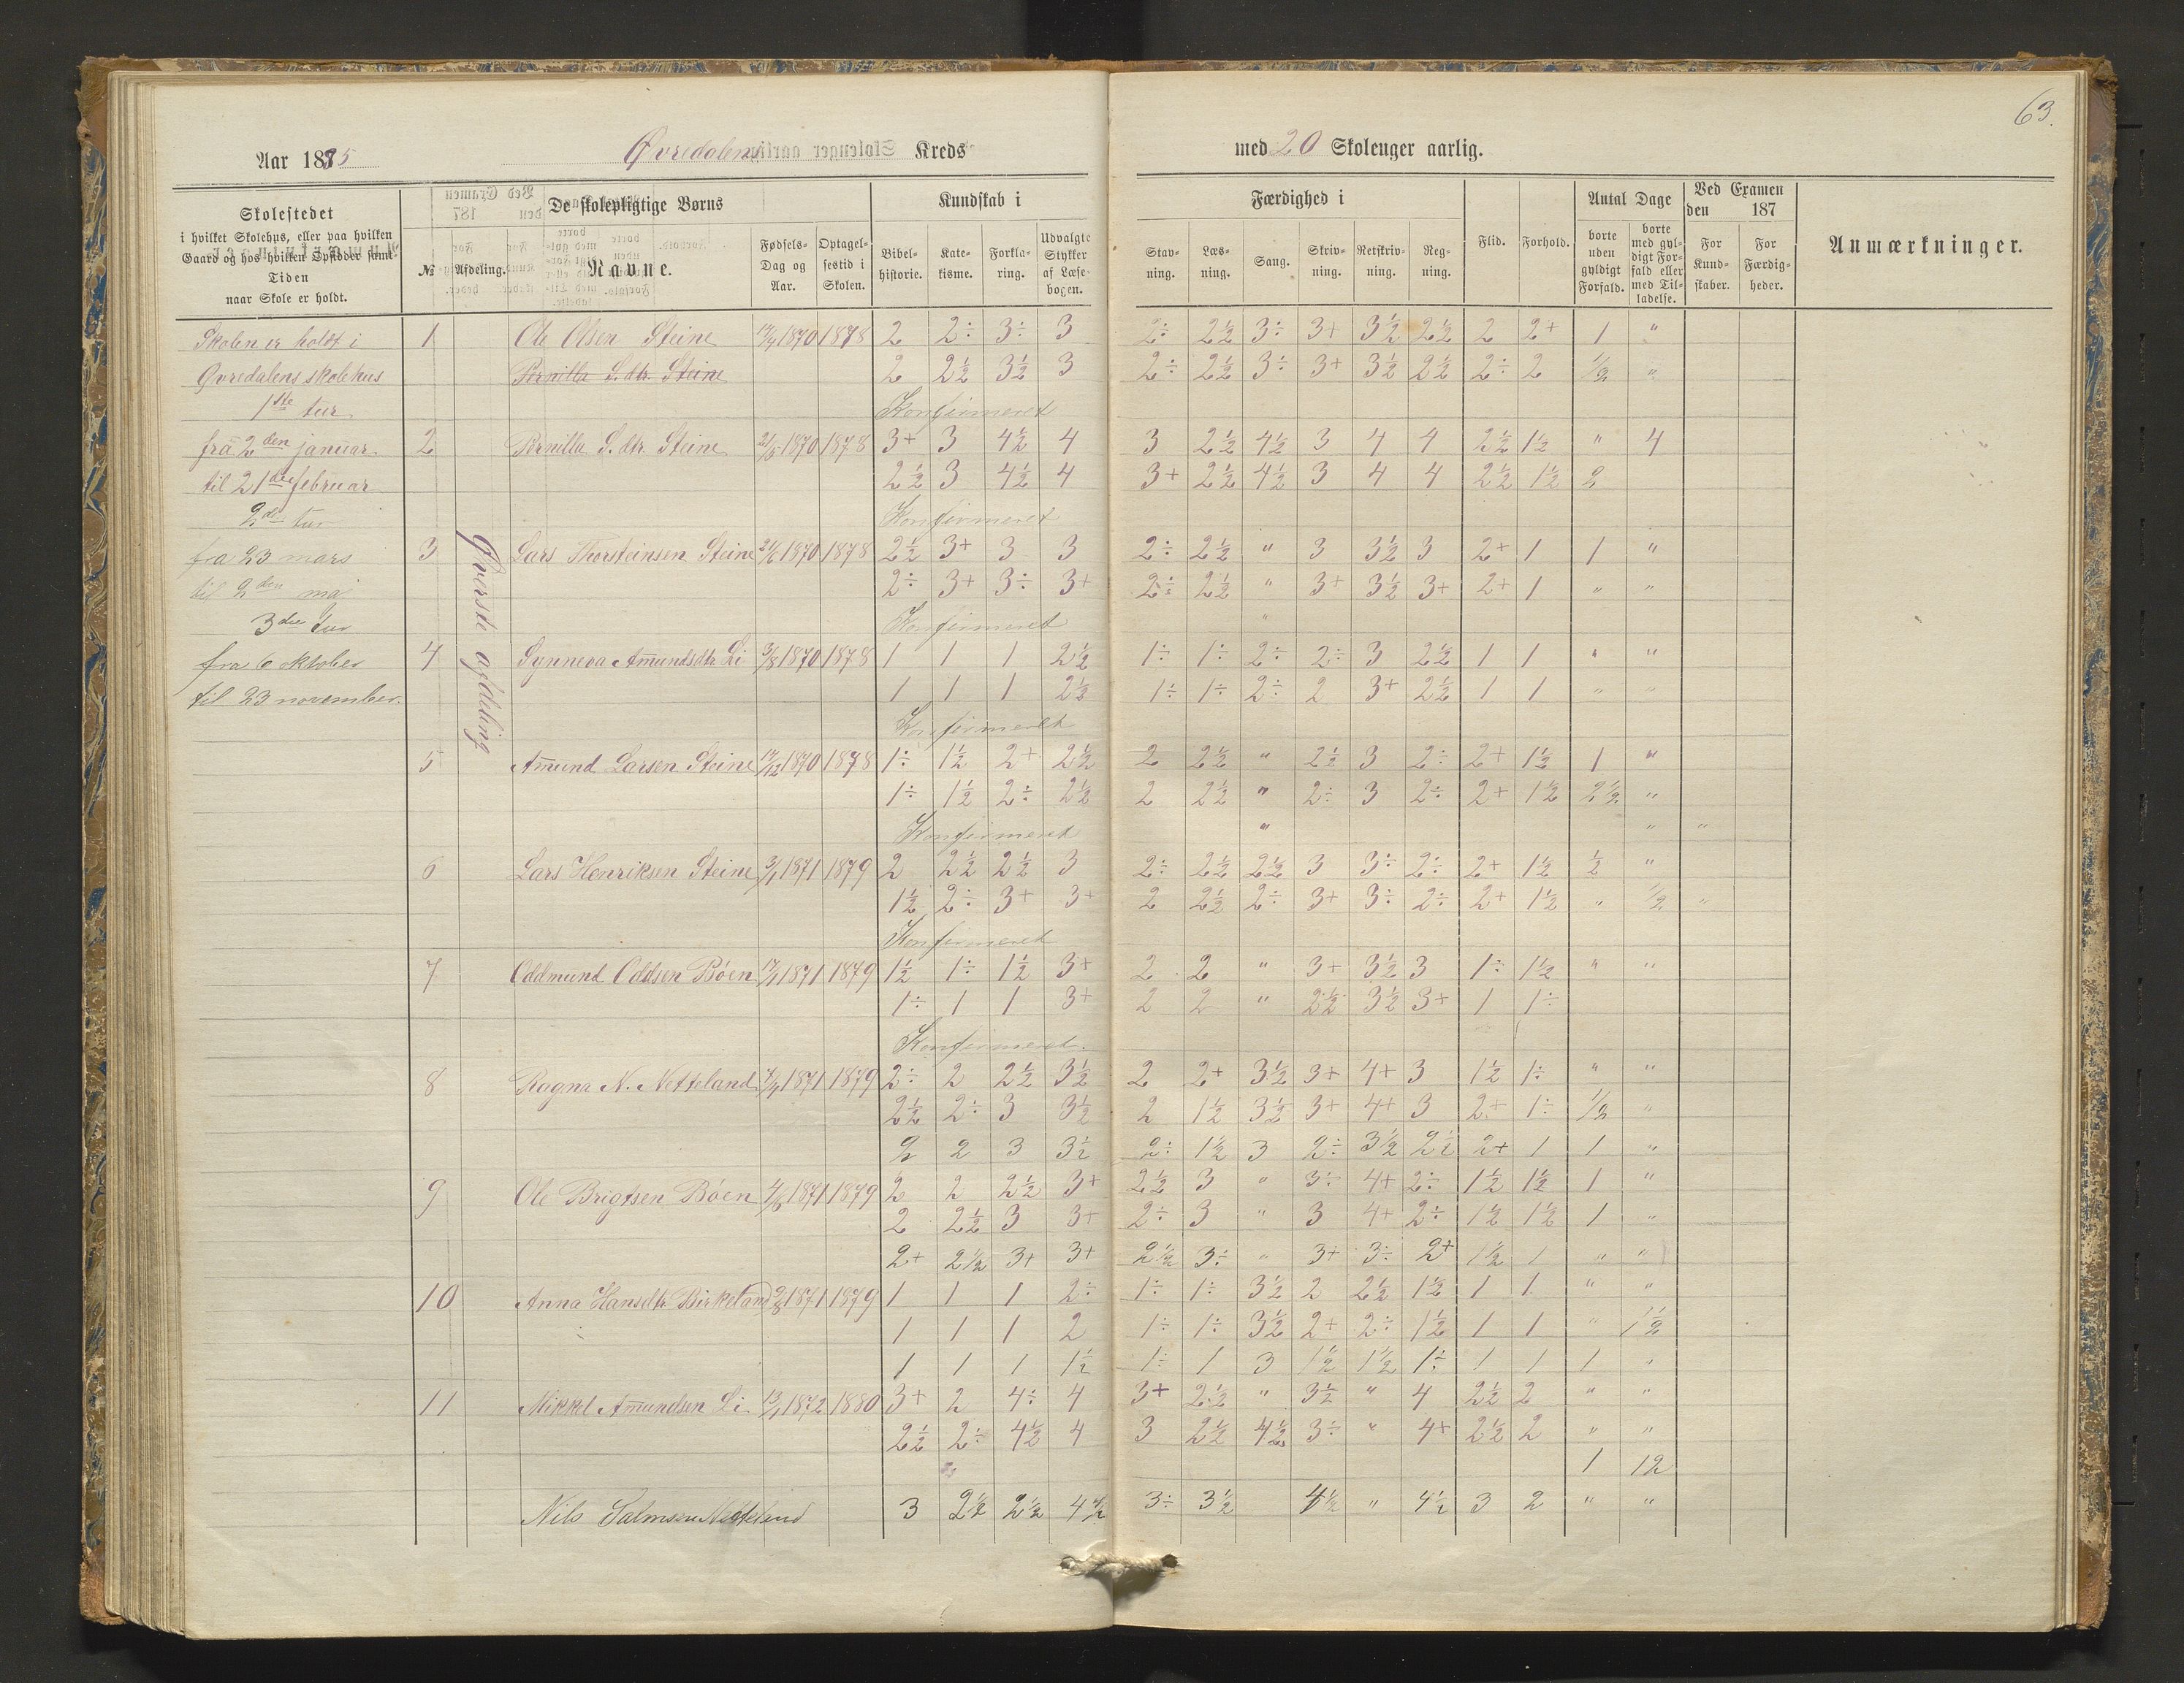 63.
Aar 1885 Øvredalens Kreds med 20 Skoleuger aarlig.
Skolestedet
i hvilket Skolehus, eller paa hvilken
Gaard og hos hvilken Opsidder samt
Tiden
naar Skole er holdt.
De skolepligtige Børns
№ Afdeling. Navne. Fødsels-Dag og Aar. Optagelsestid i Skolen.
Kundskab i
Bibelhistorie. Katekisme. Forklaring. Udvalgte Stykker af Læsebogen.
Færdighed i
Stavning. Læsning. Sang. Skrivning. Retskrivning. Regning.
Flid. Forhold.
Antal Dage
borte uden gyldigt Forfald. borte med gyldigt Forfald eller med Tilladelse.
Ved Examen den 187
For Kundskaber. For Færdigheder.
Anmærkninger.
Skolen er holdt i
Øvredalens skolehus
1ste tur
fra 2den januar
til 21de februar
2den tur
fra 23 mars
til 2den mai
3die tur
fra 6 oktober
til 23 november.
Øverste afdeling
1 Ole Olsen Steine 17/4 1870 1878 2 2÷ 3÷ 3 2÷ 2½ 3÷ 3+ 3½ 2½ 2 2+ 1 "
Pernilla S. dtr. Steine 2 2½ 3½ 3 2÷ 2½ 3÷ 3+ 3½ 2½ 2÷ 2 1/2 "
Konfirmeret
2 Pernilla S. dtr Steine 1870 1878 3+ 3 4½ 4 3 2½ 4½ 3 4 4 2½ 1½ " 4
2½ 3 4½ 4 3+ 2½ 4½ 3 4 4 2½ 1½ 2
Konfirmeret
3 Lars Thorsteinsen Steine 21/6 1870 1878 2½ 3+ 3 3 2÷ 2½ " 3 3½ 3 2+ 1 1 "
2÷ 3+ 3÷ 3+ 2÷ 2½ " 3+ 3½ 3+ 2+ 1 " "
Konfirmeret "
4 Synneva Amundsdtr Li 3/8 1870 1878 1 1 1 2½ 1÷ 1÷ 2÷ 2÷ 3 2½ 1 1 " "
1 1 1 2½ 1÷ 1÷ 2÷ 2 3+ 2½ 1 1 " "
Konfirmeret
5 Amund Larsen Steine 17/12 1870 1878 1÷ 1½ 2+ 2½ 2 2½ " 2½ 3 2÷ 2+ 1½ 1 "
1÷ 1½ 2÷ 2½ 2 2½ " 2÷ 3 2÷ 2+ 1½ 2½ "
Konfirmeret " " "
6 Lars Henriksen Steine 3/1 1871 1879 2 2½ 2½ 3 2÷ 2½ 2½ 3 3÷ 2÷ 2+ 1½ ½ "
1½ 2÷ 3+ 3+ 2 2½ 2÷ 3+ 3÷ 2÷ 2+ 1½ " 1/2 "
Konfirmeret
7 Oddmund Oddsen Bøen 17/1 1871 1879 1½ 1÷ 1½ 3+ 2 2 " 3+ 3½ 3 1÷ 1½ " "
1÷ 1 1 3+ 2 2 " 2½ 3½ 3+ 1 1÷
Konfirmeret.
8 Ragna N. Netteland 1871 1879 2÷ 2 2½ 3½ 2 2+ 3½ 3+ 4+ 3 1½ 1÷ " "
2½ 2÷ 3 3½ 2 1½ 3½ 3+ 4+ 3 2+ 1÷ 1/2 "
2 2 3 3½ 2÷ 1½ 3 2÷ 3½ 2½ 2+ 1 1 "
9 Ole Brigtsen Bøen 4/6 1871 1879 2 2 2½ 3+ 2½ 3 " 3÷ 4+ 2÷ 1½ 1½ 1 "
2 2½ 3 3+ 2÷ 3 " 3 4+ 2÷ 1½ 1½ 1 "
2+ 2½ 3+ 3+ 2½ 3÷ " 3+ 3÷ 2+ 1½ 1 " "
10 Anna Hansdtr Birkeland 1871 1879 1 1 1 2÷ 1÷ 1÷ 3½ 2 2½ 1½ 1 1 " "
1 1 1 2 1÷ 1÷ 3½ 2+ 2÷ 1½ 1 1 " 1½
1 1 1 1½ 1÷ 1 3 1½ 1½ 1÷ 1 1 1 "
11 Mikkel Amundsen Li 13/1 1872 1880 3+ 2 4÷ 4 3+ 2½ " 3½ " 4 2½ 2 " "
2½ 2÷ 4½ 4 3 2½ 4½ 3÷ " 4+ 2½ 2 " "
1 12
Nils Salmsen Netteland 3 2½ 2½ 4½ 3÷ 3½ 4½ " 4½ 3 2 " "